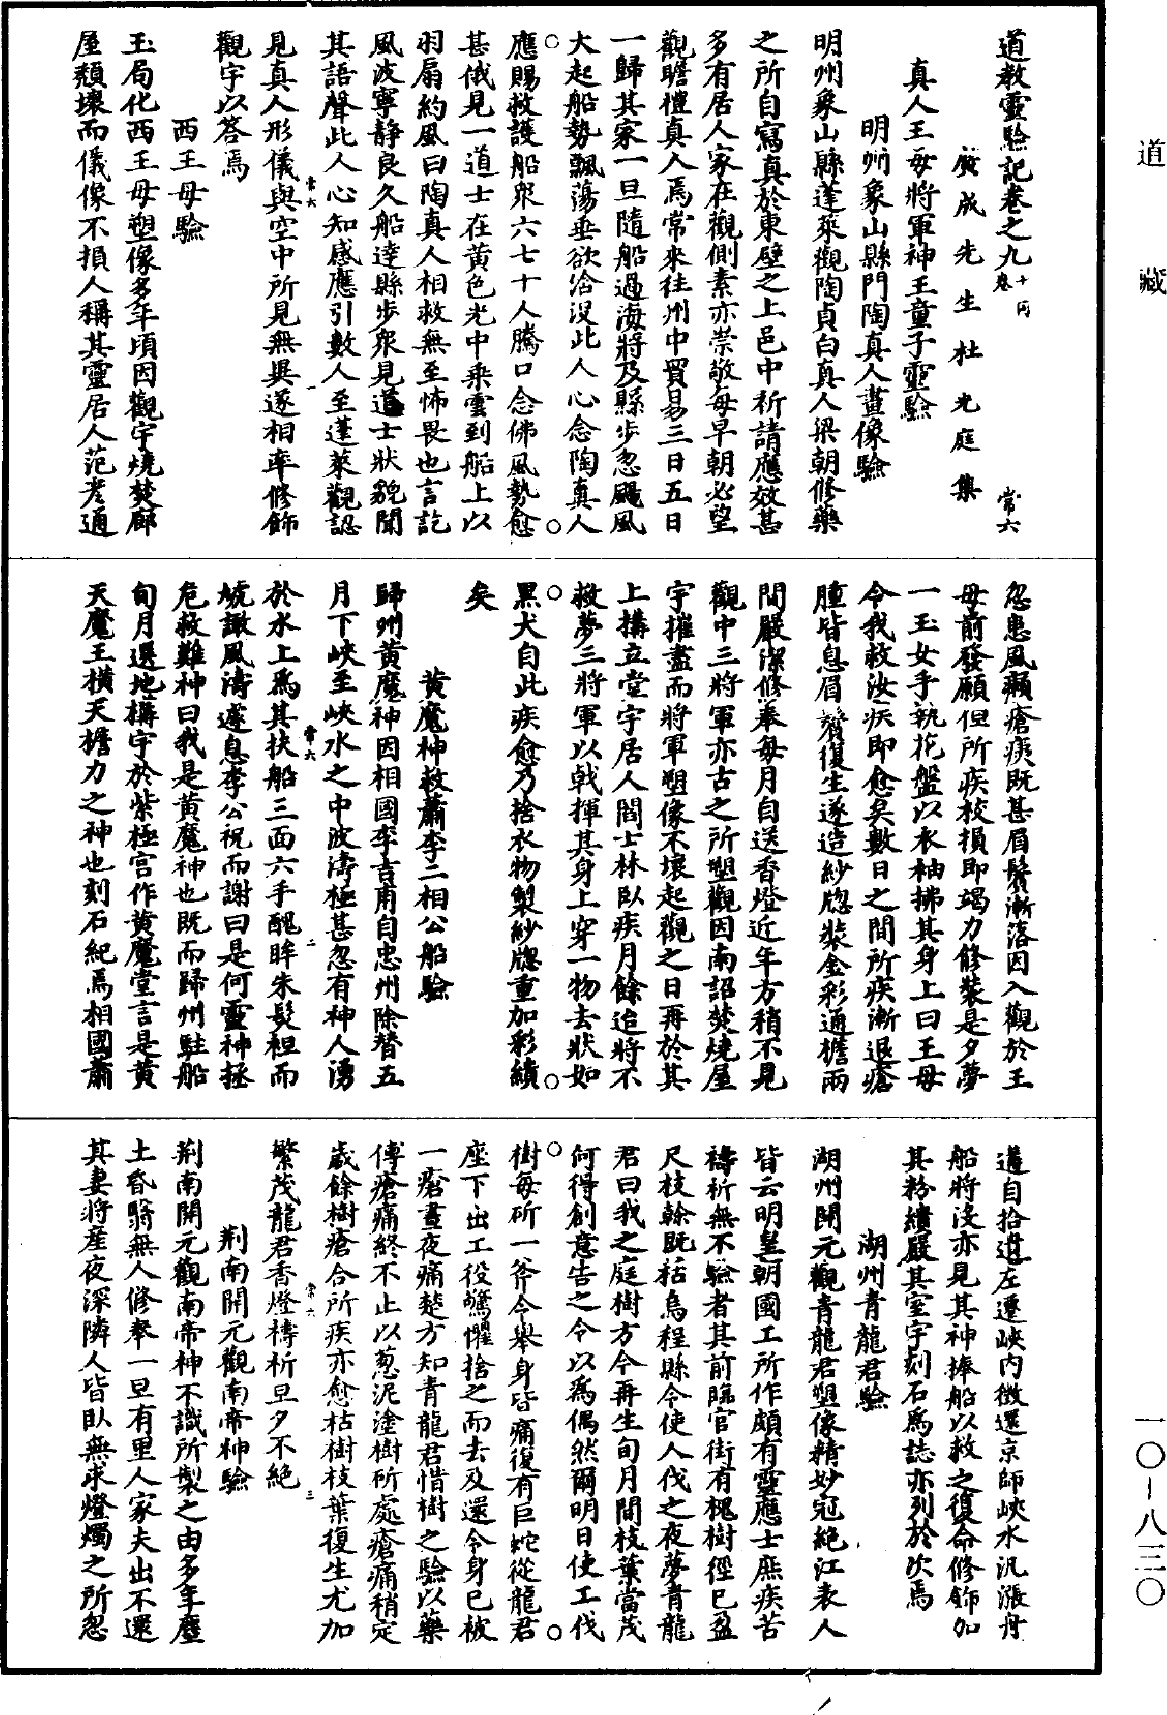 道藏
道教靈驗記卷之九
十同卷
常六
廣成先生杜光庭集
真人王母將軍神王童子靈驗
明州象山縣門陶真人畫像驗
明州象山縣蓬萊觀陶貞白真人梁朝修藥
之所自寫真於東壁之上邑中祈請應效甚
多有居人家在觀側素亦崇敬每早朝必望
觀瞻禮真人焉常來往州中貿易三日五日
一歸其家一旦隨船過海將及縣步忽颶風
大起船勢飄蕩垂欲淪沒此人心念陶真人
應賜救護船眾六七十人騰口念佛風勢愈
甚俄見一道士在黃色光中乘雲到船上以
羽扇約風曰陶真人相救無至怖畏也言訖
風波寧靜良久船達縣步眾見道士狀貌聞
其語聲此人心知感應引數人至蓬萊觀認
見真人形儀與空中所見無異遂相率修飾
觀宇以答焉
西王母驗
玉局化西王母塑像多年頃因觀宇燒焚廊
屋頹壞而儀像不損人稱其靈居人范彥通
忽患風癩瘡痍既甚眉鬚漸落因入觀於王
母前發願但所疾校損即竭力修裝是夕夢
一玉女手執花盤以衣袖拂其身上曰王母
令我救汝疾即愈矣數日之間所疾漸退瘡
腫皆息眉鬢復生遂造紗牕裝金彩通檐兩
間嚴潔修奉每月自送香燈近年方稍不見
觀中三將軍亦古之所塑觀因南詔焚燒屋
宇摧盡而將軍塑像不壞起觀之日再於其
上搆立堂宇居人閻士林臥疾月餘迨將不
救夢三將軍以戟揮其身上穿一物去狀如
黑犬自此疾愈乃捨衣物製紗牕重加彩繢
矣
黃魔神救蕭李二相公船驗
歸州黃魔神因相國李吉甫自忠州除替五
月下峽至峽水之中波濤極甚忽有神人湧
於水上為其扶船三面六手醜眸朱髮袒而
虓譀風濤遽息李公祝而謝曰是何靈神拯
危救難神曰我是黃魔神也既而歸州駐船
旬月選地構宇於紫極宮作黃魔堂言是黃
天魔王橫天擔力之神也刻石紀焉相國蕭
遘自拾遺左遷峽內徵還京師峽水汎漲舟
船將沒亦見其神捧船以救之復命修飾加
其粉繢嚴其室宇刻石為誌亦列於次焉
湖州青龍君驗
湖州開元觀青龍君塑像精妙冠絕江表人
皆云明皇朝國工所作頗有靈應士庶疾苦
禱祈無不驗者其前臨官街有槐樹徑已盈
尺枝榦既枯烏程縣令使人伐之夜夢青龍
君曰我之庭樹方今再生旬月間枝葉當茂
何得創意告之令以為偶然爾明日使工伐
樹每斫一斧令舉身皆痛復有巨蛇從龍君
座下出工役驚懼捨之而去及還令身已被
一瘡晝夜痛楚方知青龍君惜樹之驗以藥
傅瘡痛終不止以葱泥塗樹所處瘡痛稍定
歲餘樹瘡合所疾亦愈枯樹枝葉復生尤加
繁茂龍君香燈禱祈旦夕不絕
荆南開元觀南帝神驗
荆南開元觀南帝神不識所製之由多年塵
土昏翳無人修奉一旦有里人家夫出不還
其妻將產夜深隣人皆臥無求燈燭之所忽
常六
一
常六
二
常六
三
一〇—八三〇